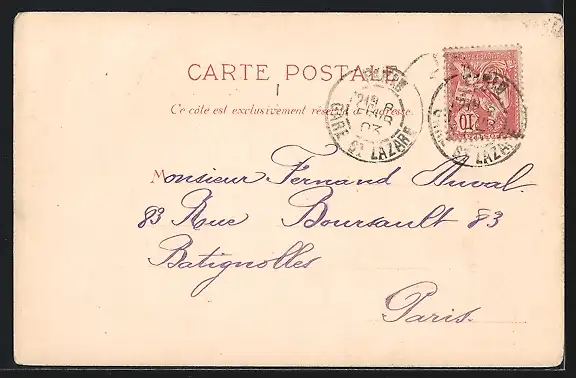 CARTE POSTALE
Ce côté est exclusivement réservé à l'adresse.
PARIS
GARE ST LAZARE
03
10
Monsieur Fernand Duval.
83 Rue Boursault 83
Batignolles
Paris.